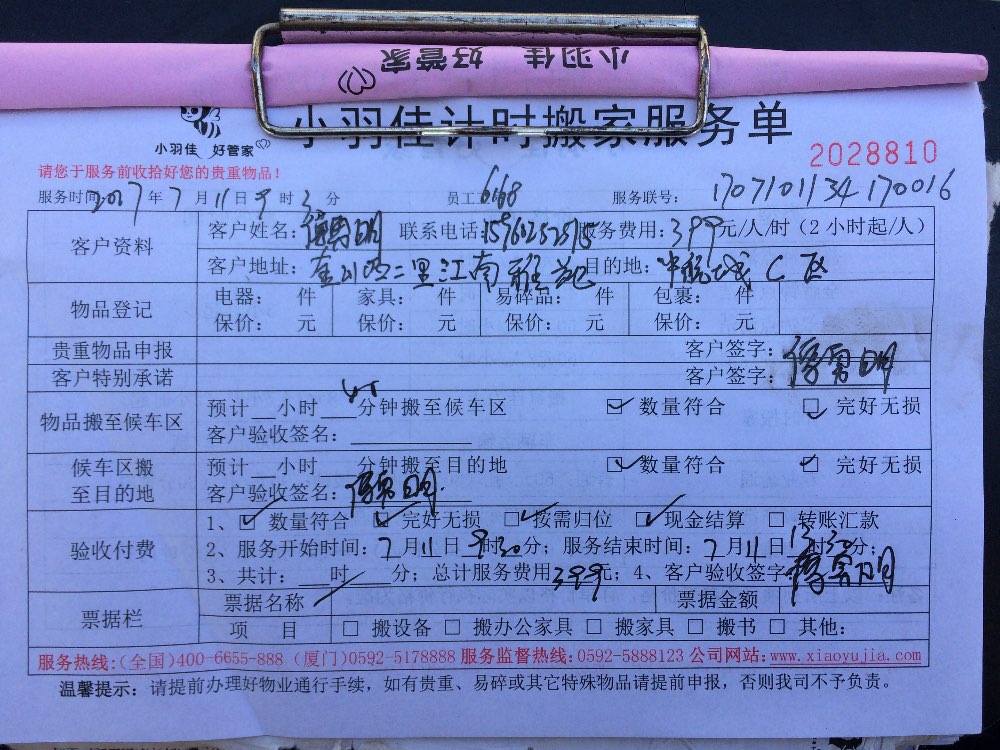 小羽佳 好管家
小羽佳计时搬家服务单
小羽佳 好管家
2028810
请您于服务前收拾好您的贵重物品！
服务时间 2017 年 7 月 11 日 9 时 3 分 员工 668 服务联号： 1707101134170016
客户资料 客户姓名： 联系电话：15960252515 服务费用：399 元/人/时（2 小时起/人）
客户地址： 二里江南雅苑 目的地： C 区
物品登记 电器： 件 家具： 件 易碎品： 件 包裹： 件
保价： 元 保价： 元 保价： 元 保价： 元
贵重物品申报 客户签字：
客户特别承诺 客户签字：
物品搬至候车区 预计 小时 45 分钟搬至候车区 ☑ 数量符合 ☑ 完好无损
客户验收签名：
候车区搬至目的地 预计 小时 分钟搬至目的地 ☑ 数量符合 ☑ 完好无损
客户验收签名：
验收付费 1、☑ 数量符合 ☑ 完好无损 ☑ 按需归位 ☑ 现金结算 □ 转账汇款
2、服务开始时间：7 月 11 日 9 时 30 分；服务结束时间：7 月 11 日 13 时 30 分；
3、共计： 时 分；总计服务费用 399 元；4、客户验收签字
票据栏 票据名称 票据金额
项 目 □ 搬设备 □ 搬办公家具 □ 搬家具 □ 搬书 □ 其他：
服务热线：(全国)400-6655-888 (厦门)0592-5178888 服务监督热线：0592-5888123 公司网站：www.xiaoyujia.com
温馨提示：请提前办理好物业通行手续，如有贵重、易碎或其它特殊物品请提前申报，否则我司不予负责。